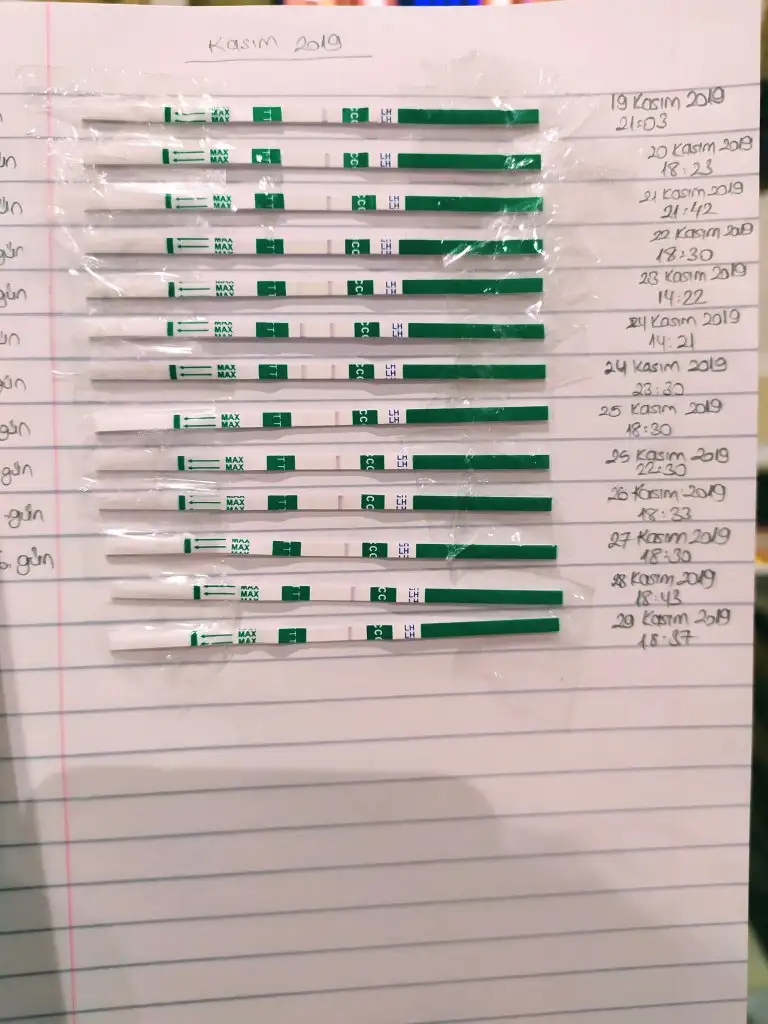 Kasım 2019
MAX MAX T T C C LH LH 19 Kasım 2019
21:03
ün MAX MAX T T C C LH LH 20 Kasım 2019
18:23
ün MAX MAX T T C C LH LH 21 Kasım 2019
21:42
gün MAX MAX T T C C LH LH 22 Kasım 2019
18:30
gün MAX MAX T T C C LH LH 23 Kasım 2019
14:22
ün MAX MAX T T C C LH LH 24 Kasım 2019
14:21
gün MAX MAX T T C C LH LH 24 Kasım 2019
23:30
gün MAX MAX T T C C LH LH 25 Kasım 2019
18:30
gün MAX MAX T T C C LH LH 25 Kasım 2019
22:30
.gün MAX MAX T T C C LH LH 26 Kasım 2019
18:33
. gün MAX MAX T T C C LH LH 27 Kasım 2019
18:30
MAX MAX T T C C LH LH 28 Kasım 2019
18:43
MAX MAX T T C C LH LH 29 Kasım 2019
18:37